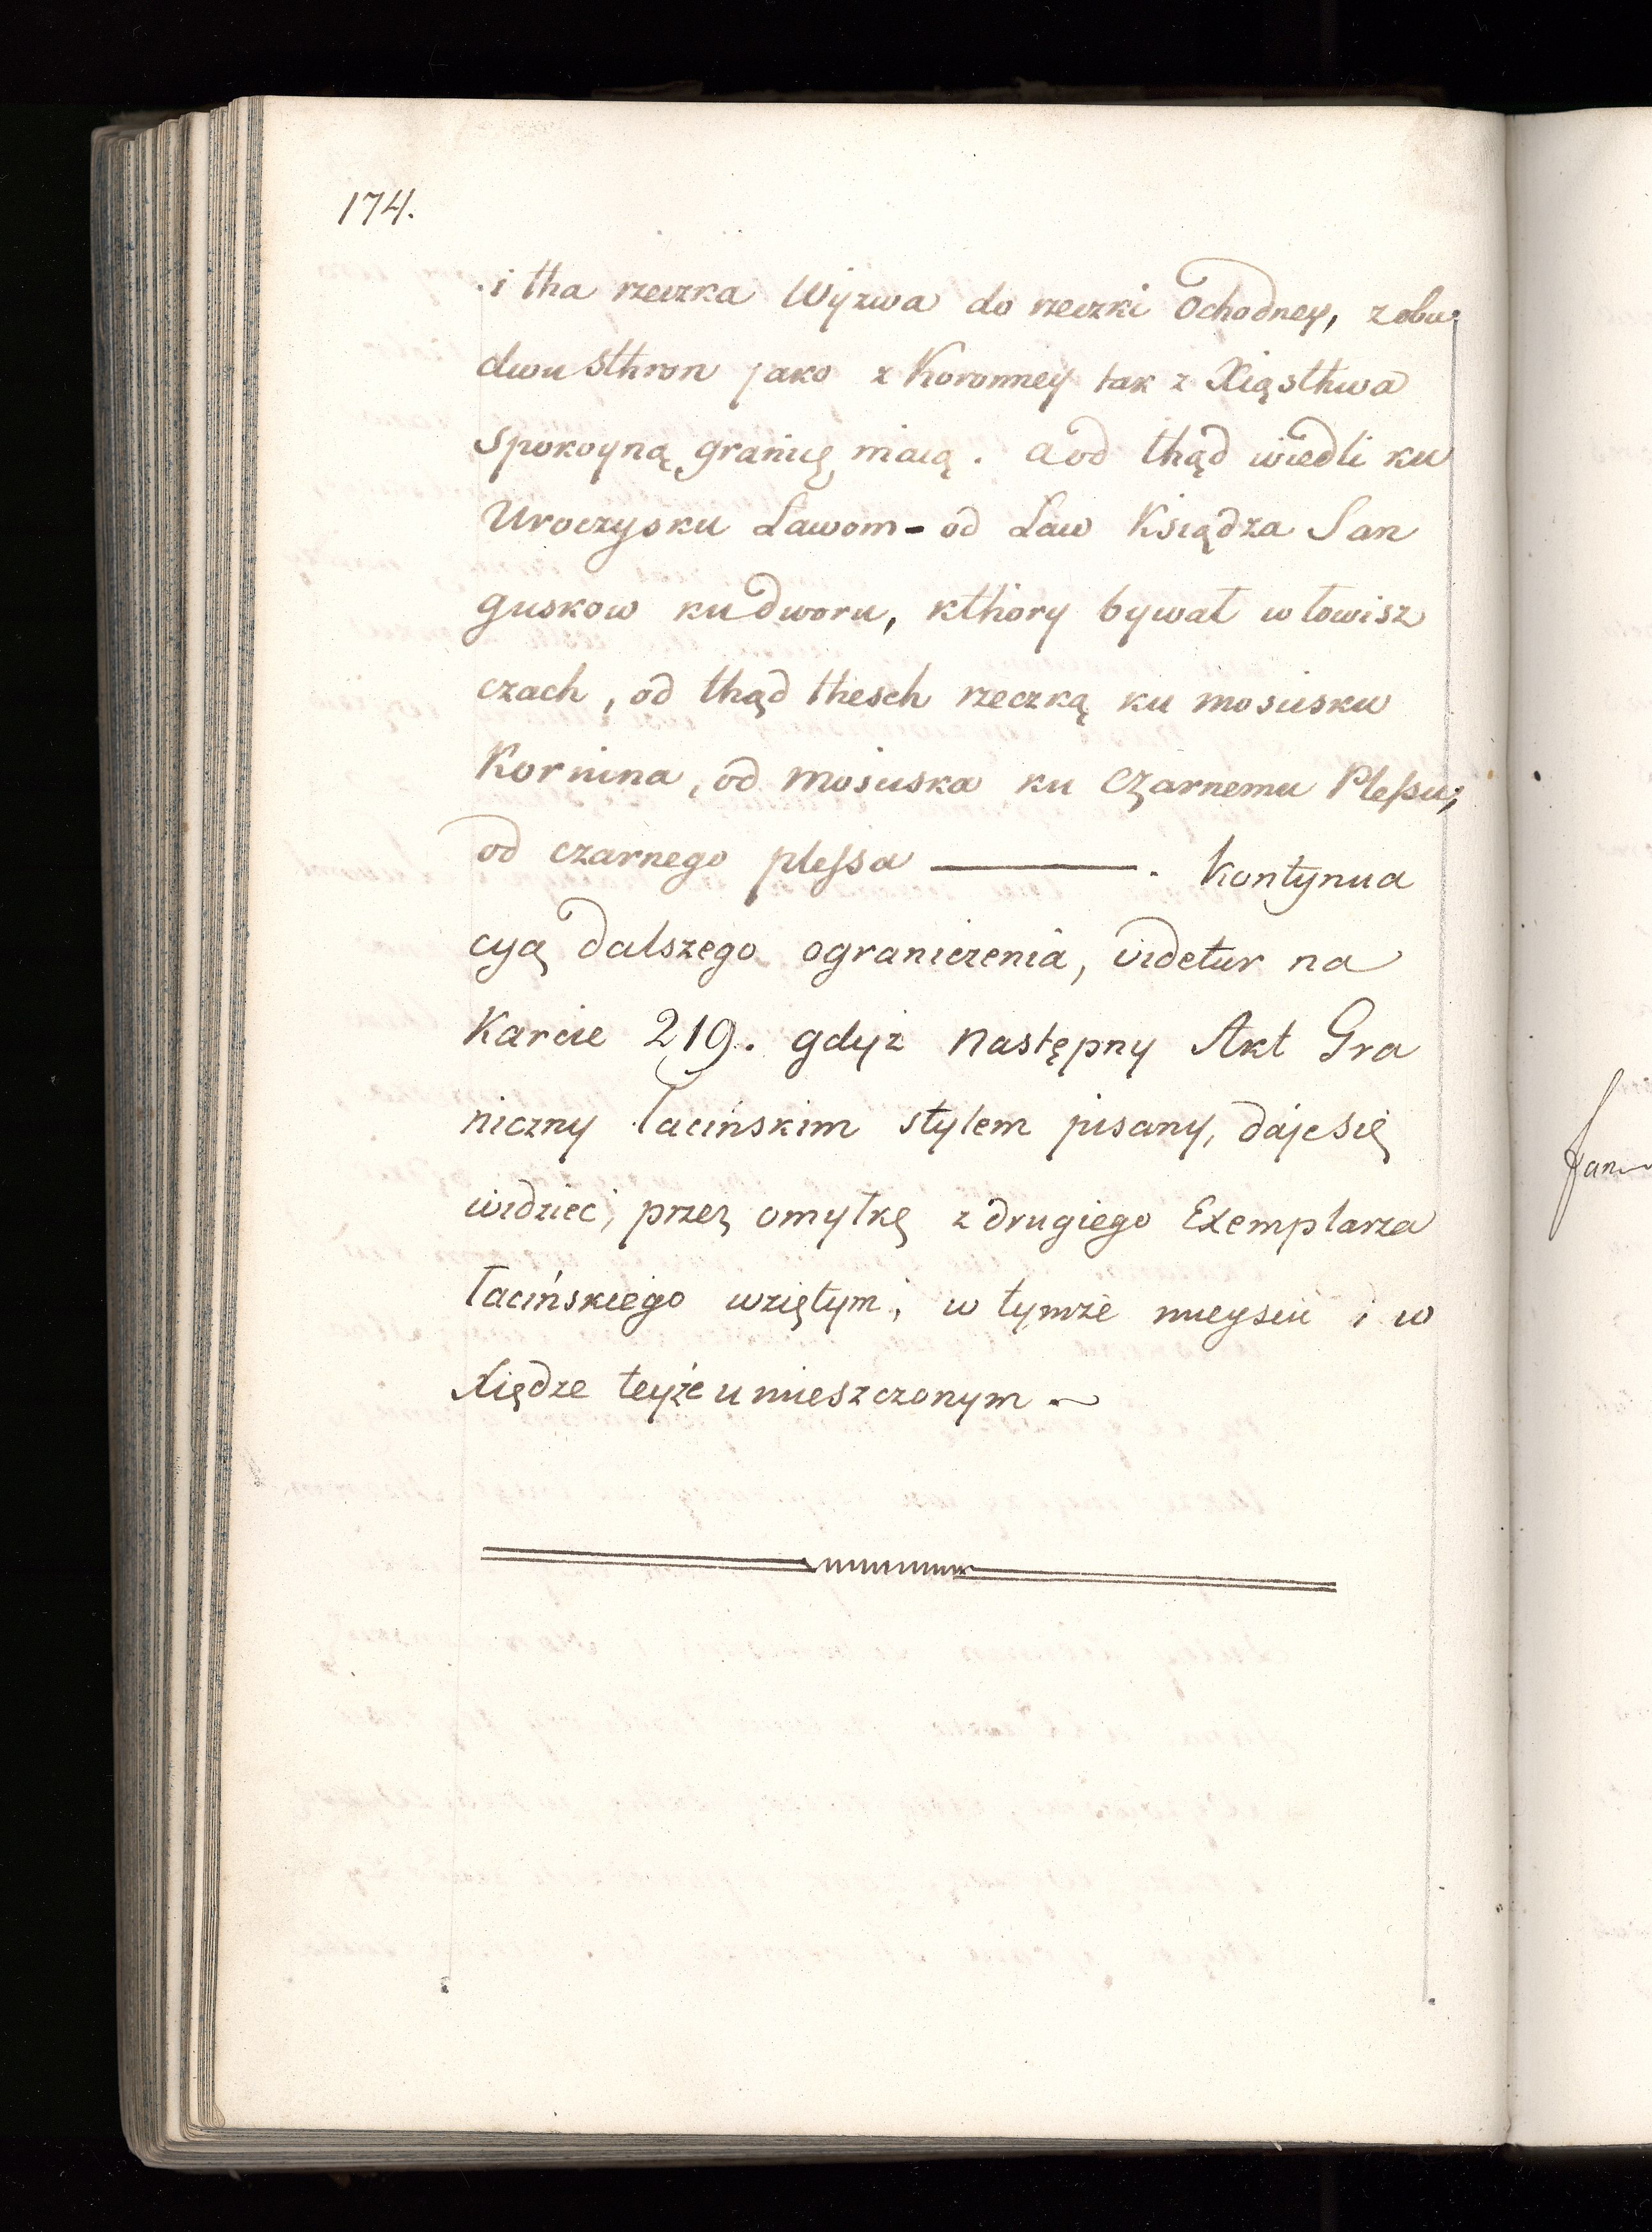 174.
i tha rzeczka Wyzwa do rzeczki Ochodney, z obu
dwu sthron jako z Koronney tak z Xięsthwa
spokoyną granicę maią. a od thąd wiedli ku
Uroczysku Lawom - od Law Ksiądza San
guskow ku dworu, kthory bywał w łowisz
czach, od thąd thesch rzeczką ku mosciusku
Kornina, od mosciuska ku Czarnemu Plessu,
od czarnego plessa ———. Kontynua
cyą dalszego ograniczenia, videtur na
Karcie 219. gdyż następny Akt Gra
niczny łacińskim stylem pisany, daje się
widzieć, przez omyłkę z drugiego Exemplarza
łacińskiego wziętym, w tymże mieyscu i w
Xiędze teyże umieszczonym.